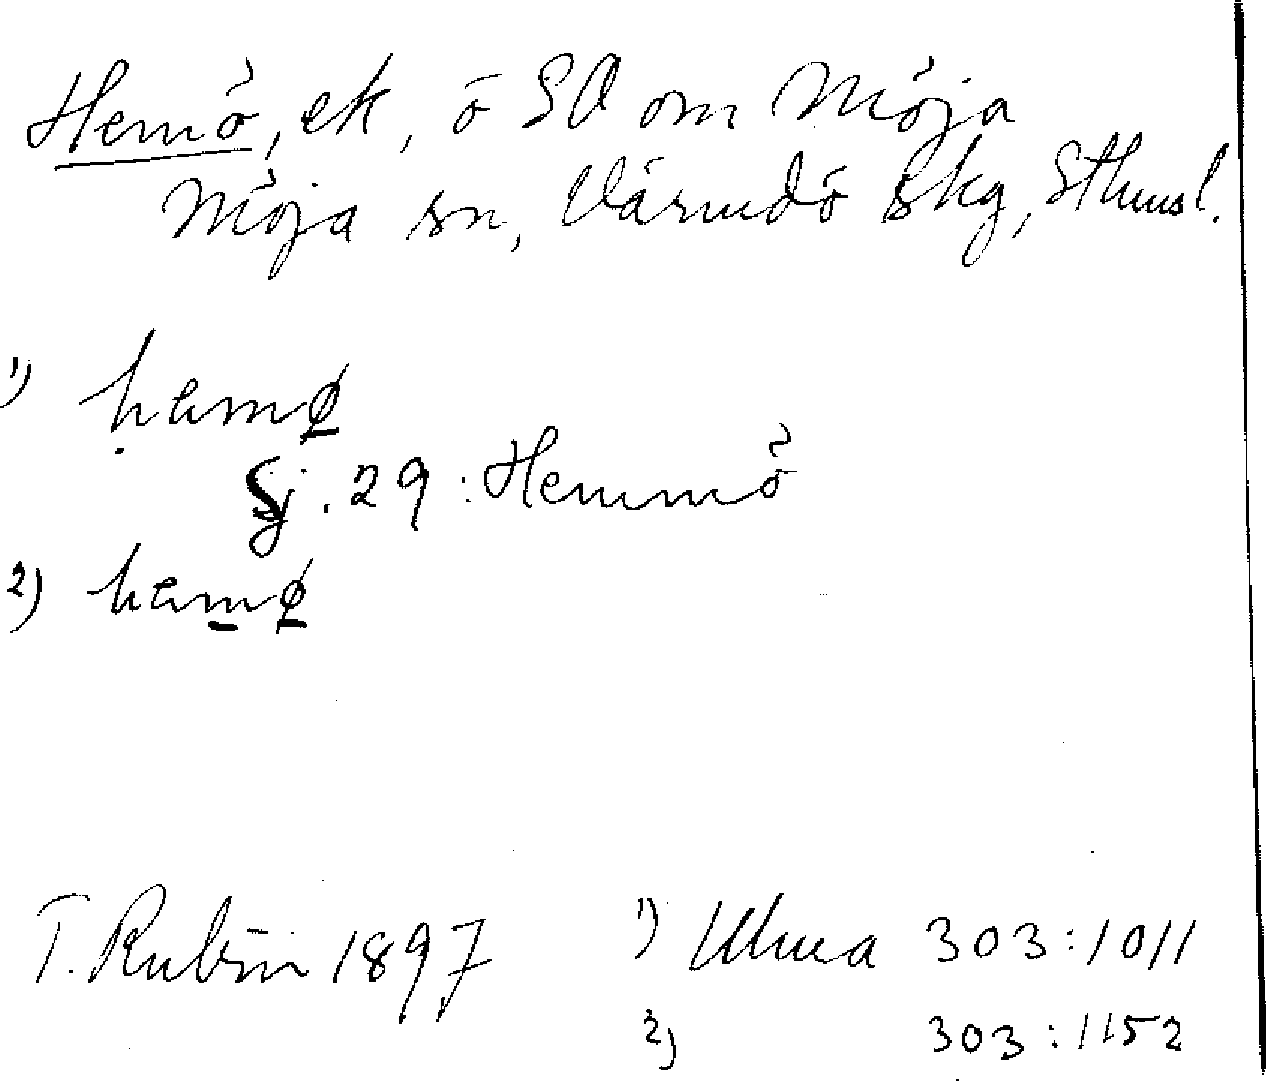 Hemö, ek, ö SO om Möja
Möja sn, Värmdö skg, Sthmsl.
1) hemø
Sj. 29: Hemmö
2) hemø
T. Rubin 1897 1) Ulma 303:1011
2) 303:1152